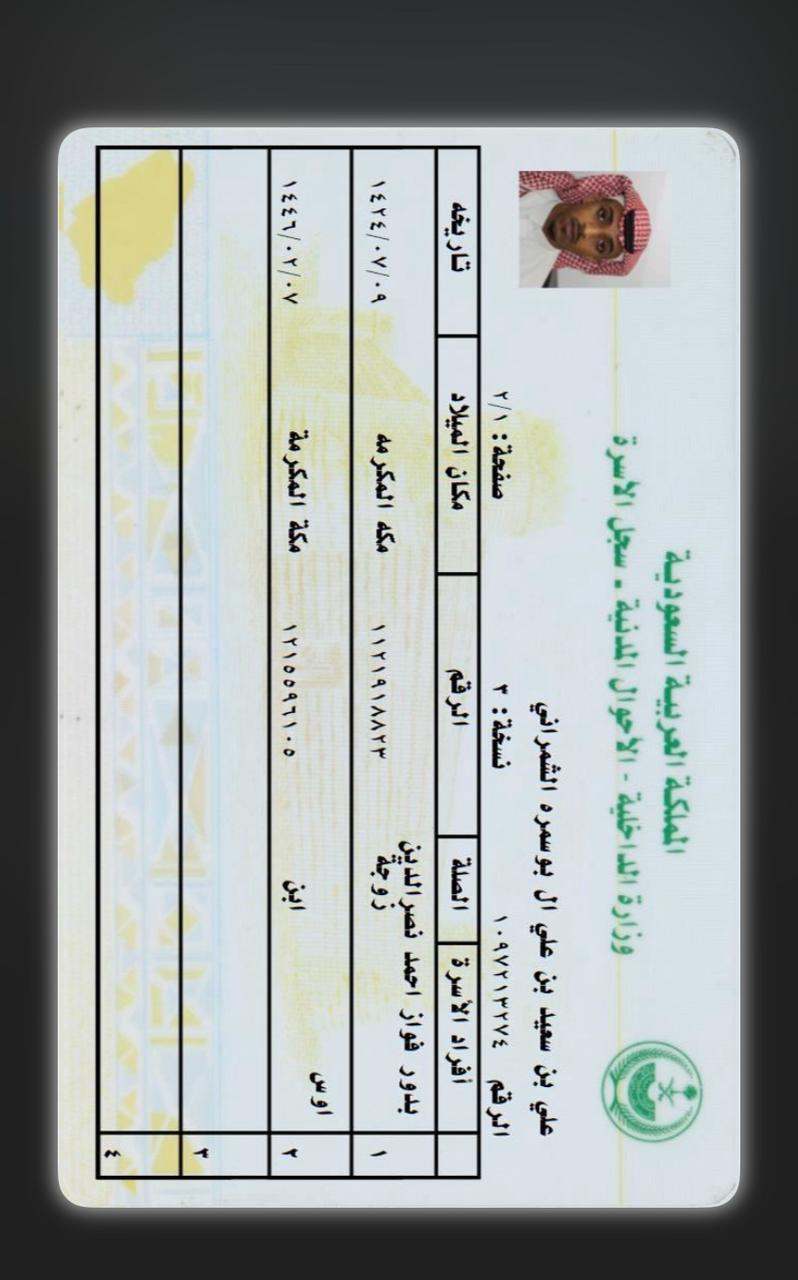 المملكة العربية السعودية
وزارة الداخلية - الأحوال المدنية - سجل الأسرة
علي بن سعيد بن علي ال بوسمره الشمراني
الرقم ١٠٩٧٢١٣٢٧٤ نسخة: ٣ صفحة: ٢/١
أفراد الأسرة الصلة الرقم مكان الميلاد تاريخه
١ بدور فواز احمد نصرالدين زوجة ١١٢١٩١٨٨٢٣ مكه المكرمه ١٤٢٤/٠٧/٠٩
٢ اوس ابن ١٢١٥٥٩٦١٠٥ مكة المكرمة ١٤٤٦/٠٢/٠٧
٣
٤